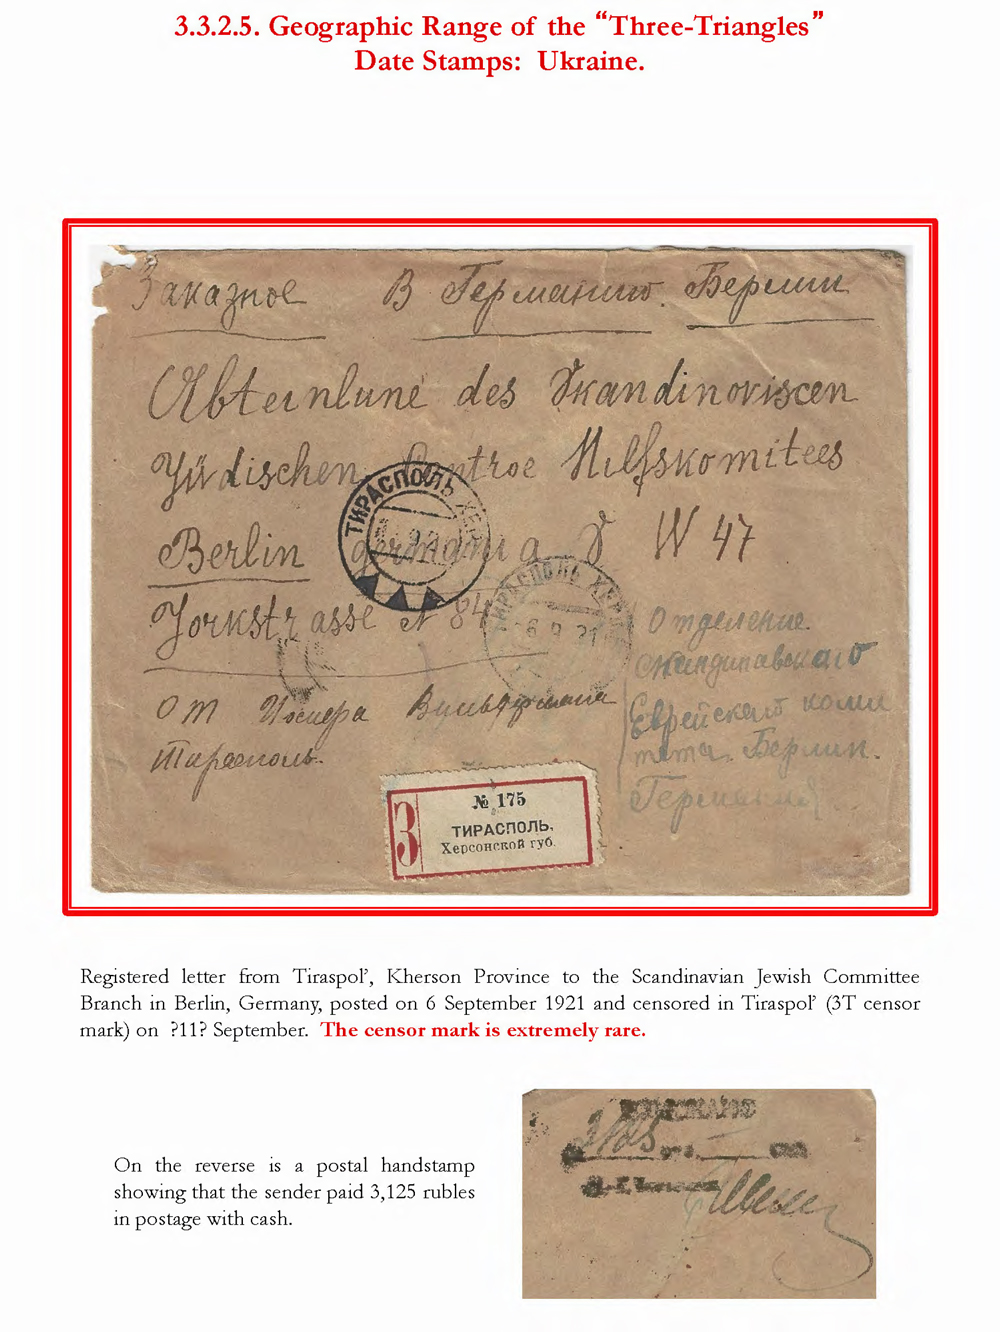 3.3.2.5. Geographic Range of the “Three-Triangles”
Date Stamps: Ukraine.
Заказное В Германию. Берлин
Abteinlune des Skandinoviscen
Jüdischen Centroe Hilfskomitees
Berlin germania W 47
Yorkstrasse N 84
ТИРАСПОЛЬ ХЕР
ТИРАСПОЛЬ ХЕР
6 9 21
Отделение
Скандинавскаго
Еврейскаго коми
тета. Берлин.
От
Тирасполь.
3
№ 175
ТИРАСПОЛЬ,
Херсонской губ.
Registered letter from Tiraspol’, Kherson Province to the Scandinavian Jewish Committee
Branch in Berlin, Germany, posted on 6 September 1921 and censored in Tiraspol’ (3T censor
mark) on ?11? September. The censor mark is extremely rare.
On the reverse is a postal handstamp
showing that the sender paid 3,125 rubles
in postage with cash.
3125